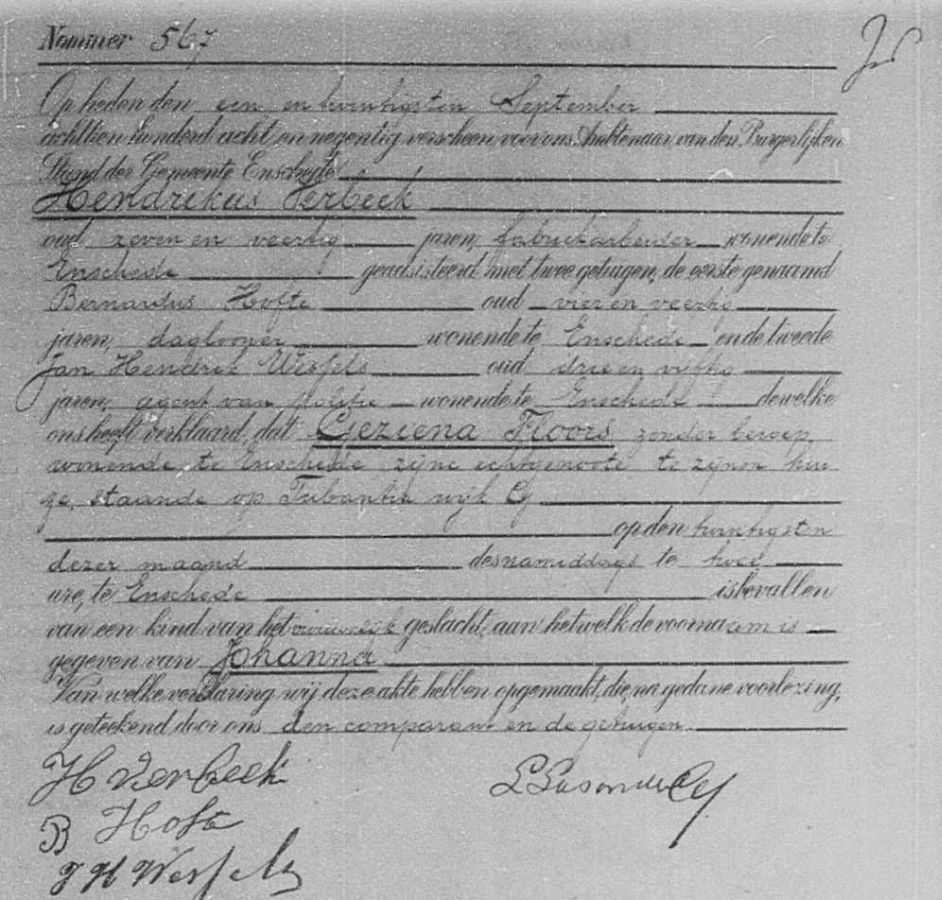 Nommer 567
Op heden den een en twintigsten September
achttien honderd acht en negentig verscheen voor ons Ambtenaar van den Burgerlijken
Stand der Gemeente Enschede
Hendrikus Verbeek
oud zeven en veertig jaren, fabriekarbeider wonende te
Enschede geadsisteerd met twee getuigen, de eerste genaamd
Bernardus Hofte oud vier en veertig
jaren, daglooner wonende te Enschede en de tweede
Jan Hendrik Wessels oud drie en vijftig
jaren, agent van Politie wonende te Enschede dewelke
ons heeft verklaard, dat Geziena Floors zonder beroep,
wonende te Enschede zijne echtgenoote te zijnen hui
ze, staande op Tubantia wijk G
op den twintigsten
dezer maand des namiddags te twee
ure, te Enschede is bevallen
van een kind van het vrouwelijk geslacht, aan hetwelk de voornaam is
gegeven van Johanna
Van welke verklaring wij deze akte hebben opgemaakt, die, na gedane voorlezing,
is geteekend door ons den comparant en de getuigen.
H Verbeek
B Hofte
J H Wessels